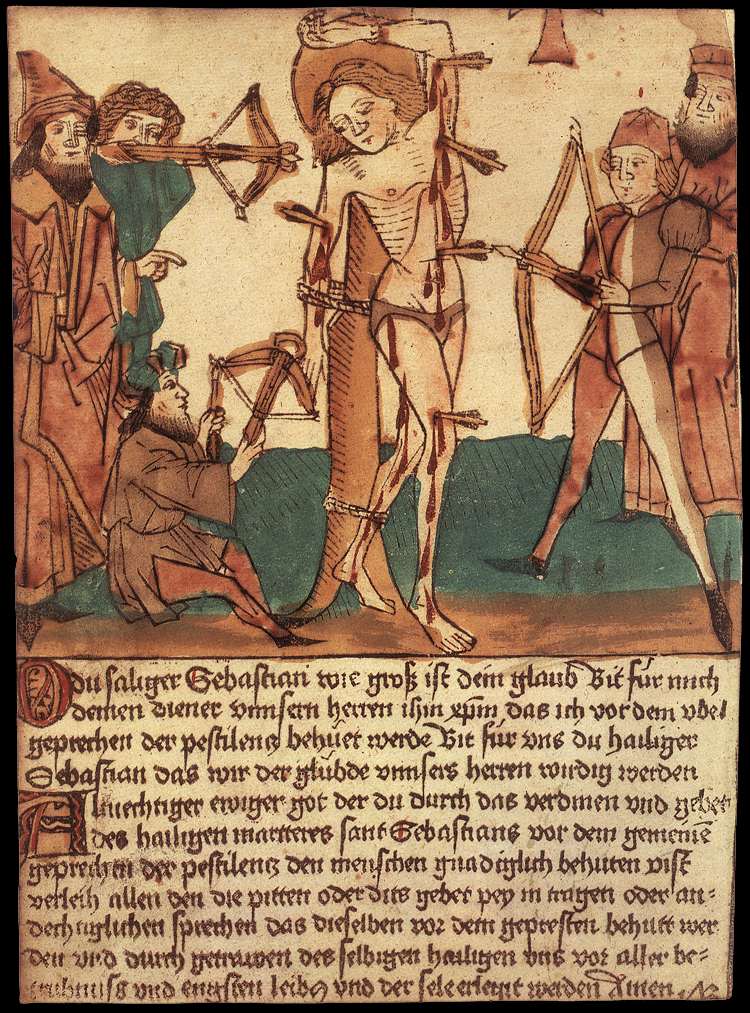 O du saliger Sebastian wie groß ist dein glaub Bit für mich
deinen diener vnnsern herren ihm xpm das ich vor dem vbel
geprechen der pestilencz behüet werde Bit für vns du hailiger
Sebastian das wir der glübde vnnsers herren wirdig werden
Almechtiger ewiger got der du durch das verdinen vnd gebet
des hailigen martteres sant Sebastians vor dem gemeinē
geprechen der pestilencz den menschen gnadiglich behuten pist
verleih allen den die pitten oder dits gebet pey in tragen oder an-
dechtiglichen sprechen das dieselben vor dem gepresten behutt wer
den vnd durch getrawen des selbigen hailigen vns vor aller be-
trubnuss vnd engsten leibs vnd der sele erlegit werden Amen